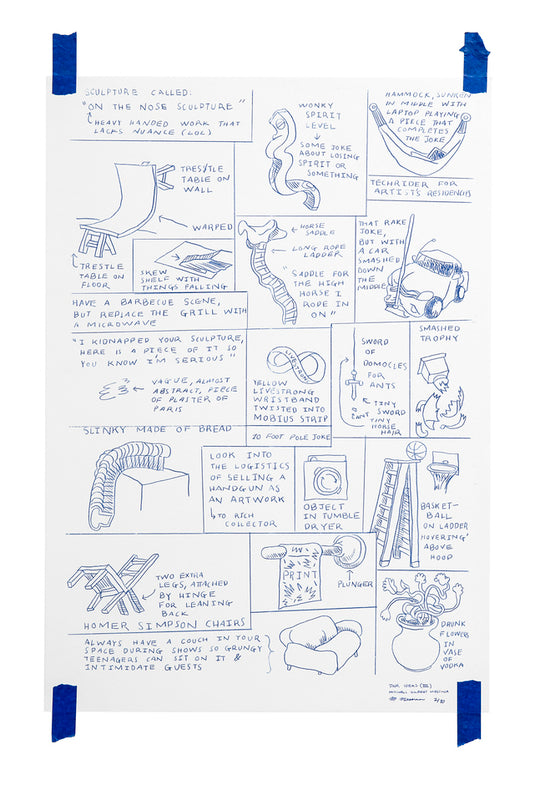 SCULPTURE CALLED:
"ON THE NOSE SCULPTURE"
HEAVY HANDED WORK THAT
LACKS NUANCE (LOL)
WONKY
SPIRIT
LEVEL
SOME JOKE
ABOUT LOSING
SPIRIT OR
SOMETHING
HAMMOCK, SUNKEN
IN MIDDLE WITH
LAPTOP PLAYING
A PIECE THAT
COMPLETES
THE JOKE
TECHRIDER FOR
ARTIST'S RESIDENCIES
TRESTLE
TABLE ON
WALL
WARPED
TRESTLE
TABLE ON
FLOOR
SKEW
SHELF WITH
THINGS FALLING
HORSE
SADDLE
LONG ROPE
LADDER
"SADDLE FOR
THE HIGH
HORSE I
RODE IN
ON"
THAT RAKE
JOKE,
BUT WITH
A CAR
SMASHED
DOWN
THE
MIDDLE
HAVE A BARBECUE SCENE,
BUT REPLACE THE GRILL WITH
A MICROWAVE
"I KIDNAPPED YOUR SCULPTURE,
HERE IS A PIECE OF IT SO
YOU KNOW I'M SERIOUS"
VAGUE, ALMOST
ABSTRACT, PIECE
OF PLASTER OF
PARIS
LIVESTRONG
YELLOW
LIVESTRONG
WRISTBAND
TWISTED INTO
MOBIUS STRIP
SWORD
OF
DOMOCLES
FOR
ANTS
TINY
SWORD
TINY
HORSE
HAIR
ANT
SMASHED
TROPHY
SLINKY MADE OF BREAD
10 FOOT POLE JOKE
LOOK INTO
THE LOGISTICS
OF SELLING A
HANDGUN AS
AN ARTWORK
TO RICH
COLLECTOR
OBJECT
IN TUMBLE
DRYER
BASKET-
BALL
ON LADDER
'HOVERING'
ABOVE
HOOP
TWO EXTRA
LEGS, ATTACHED
BY HINGE
FOR LEANING
BACK
HOMER SIMPSON CHAIRS
PRINT
PLUNGER
DRUNK
FLOWERS
IN
VASE
OF
VODKA
ALWAYS HAVE A COUCH IN YOUR
SPACE DURING SHOWS SO GRUNGY
TEENAGERS CAN SIT ON IT &
INTIMIDATE GUESTS